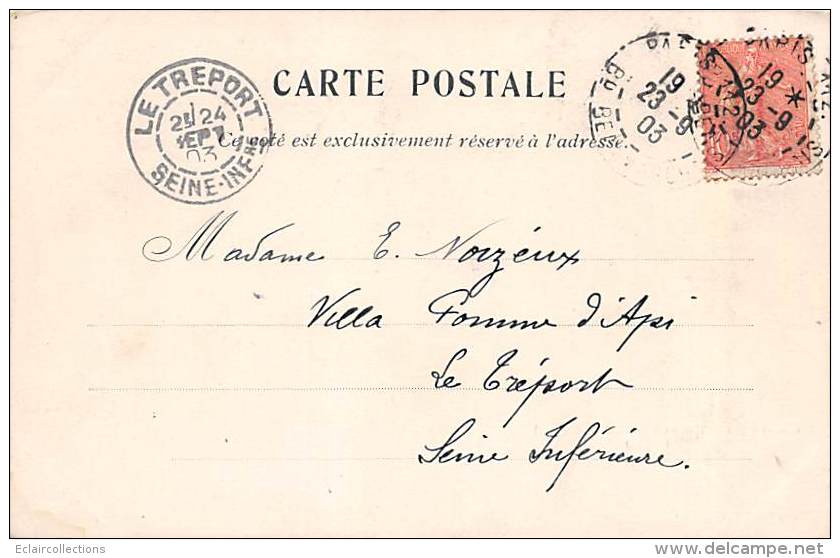 CARTE POSTALE
Ce côté est exclusivement réservé à l'adresse.
LE TREPORT
24
SEPT
03
SEINE-INFRE
PARIS
19
23 -9
03
PARIS
19 *
23 -9
03
Madame E. Noizéux
Villa Pomme d'Api
Le Tréport
Seine Inférieure.
Eclaircollections
delcampe.net